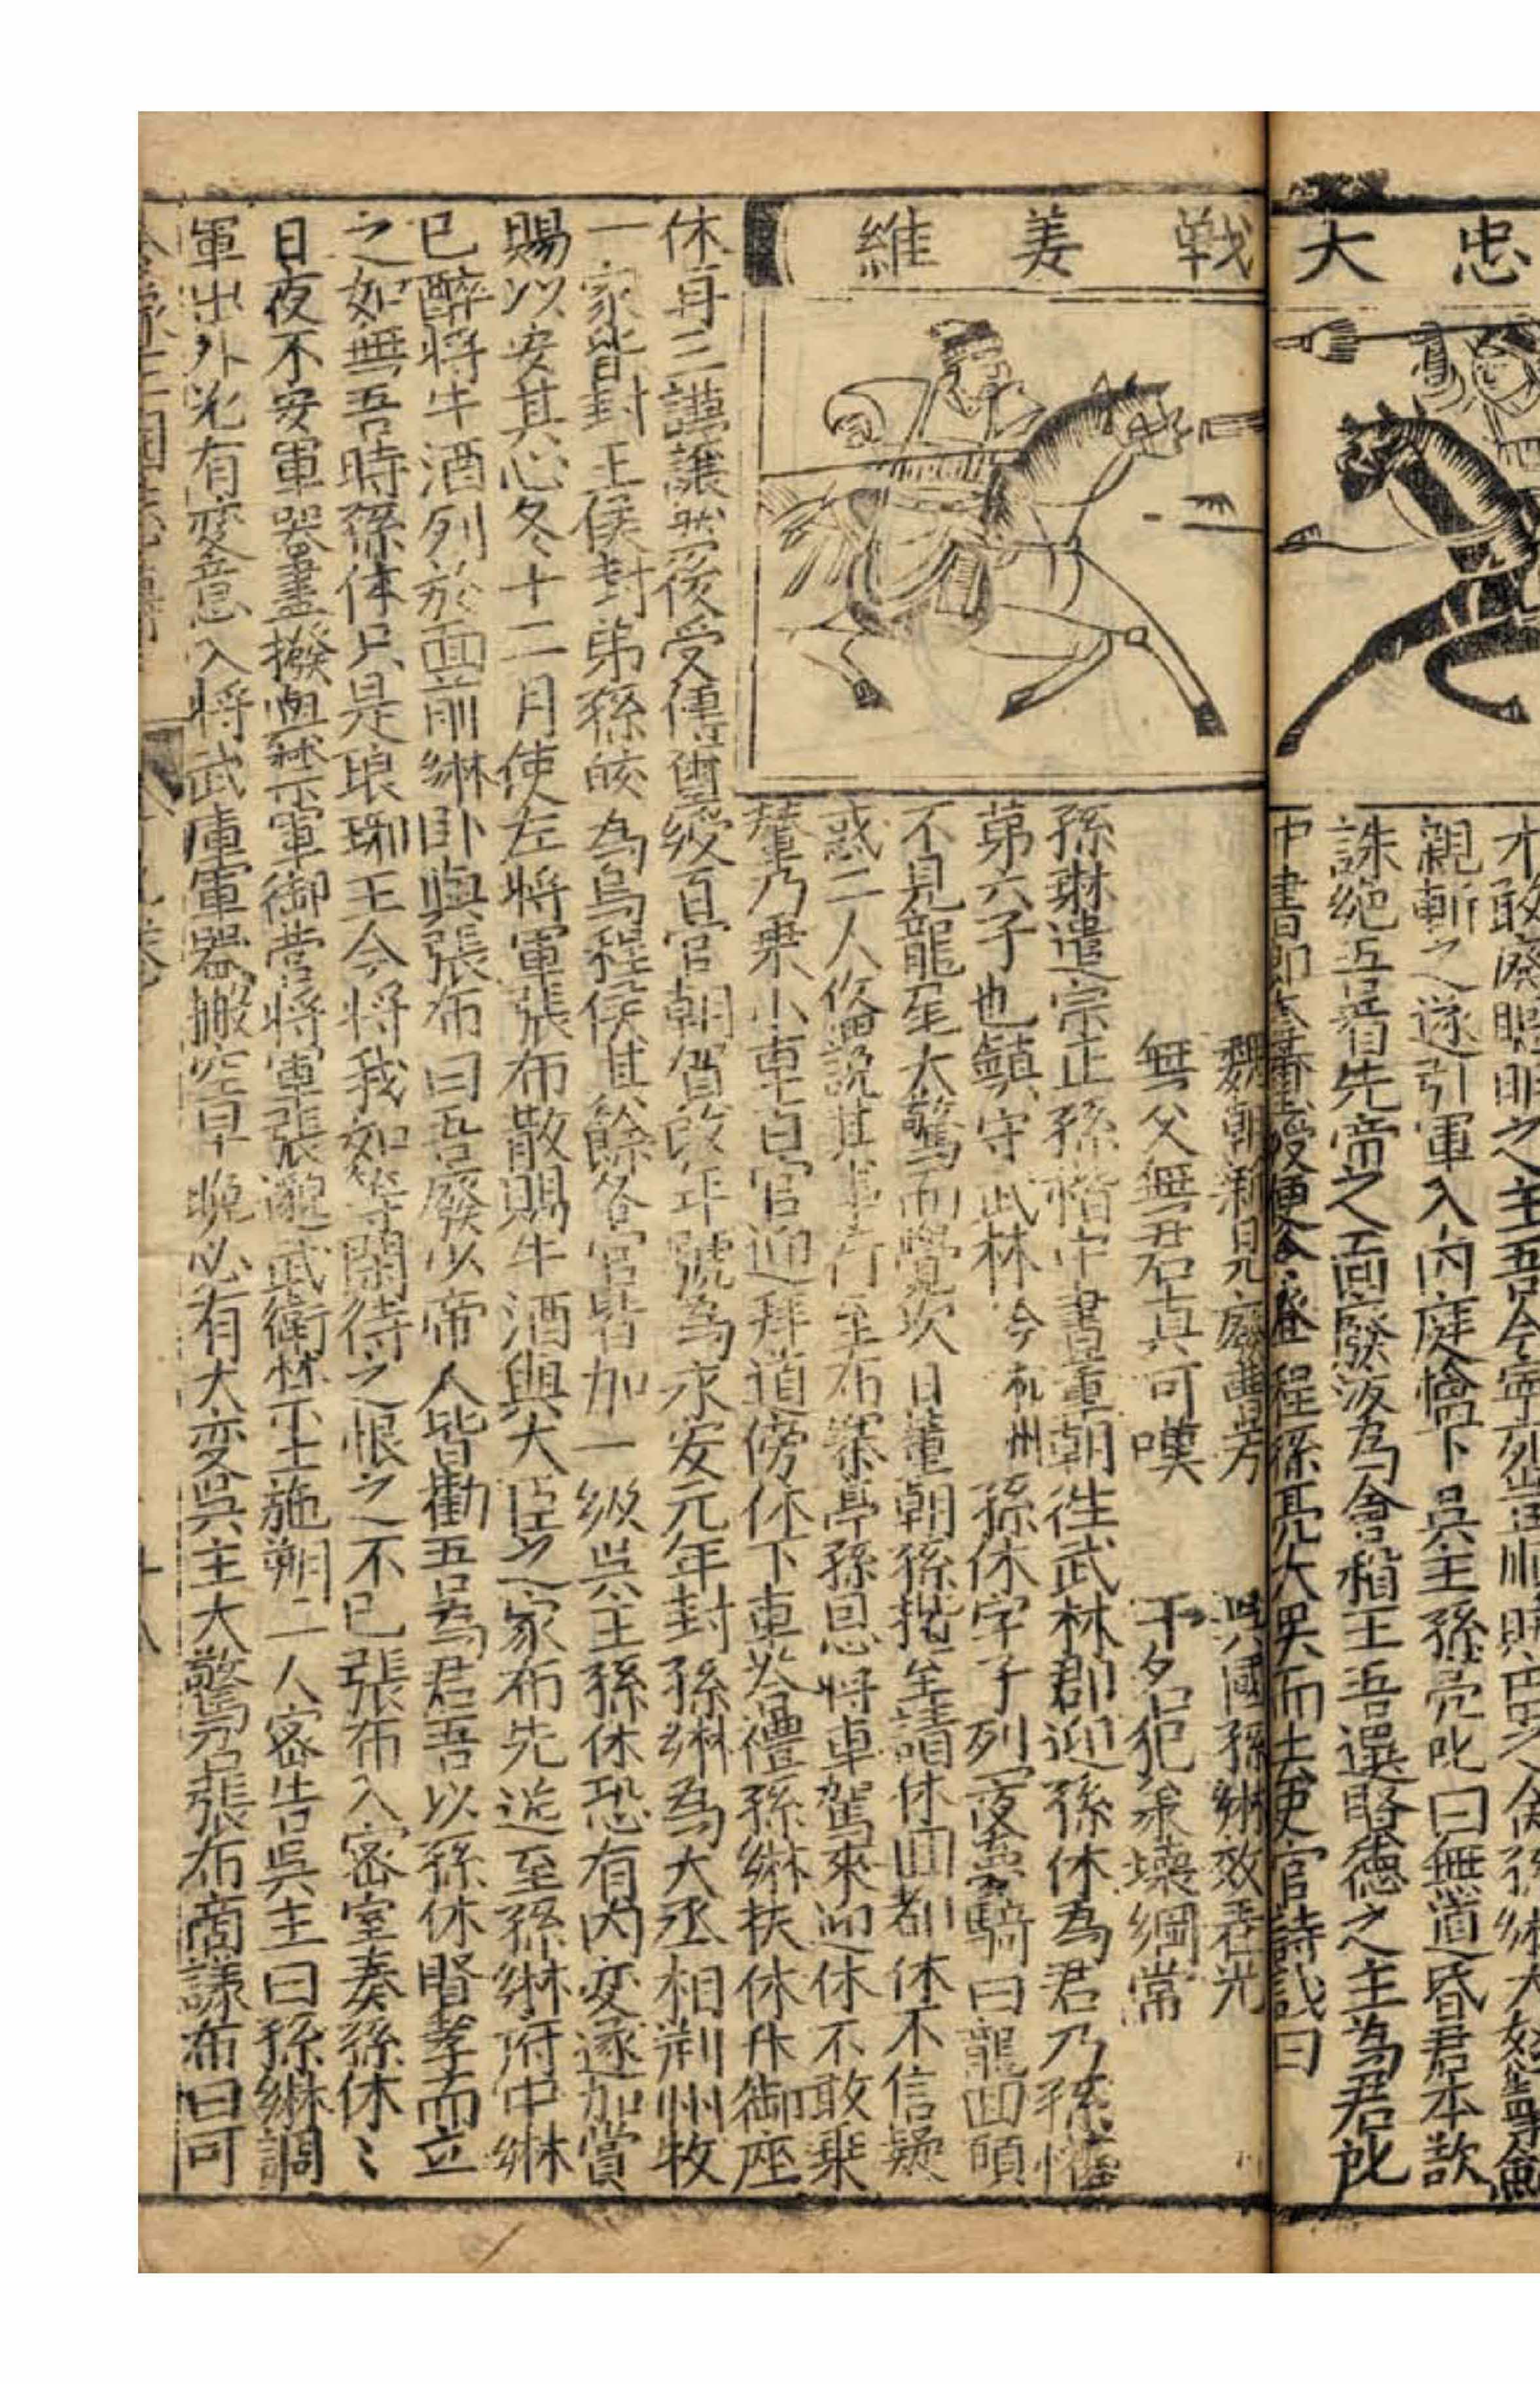 忠大戦姜維
親斬之遂引軍入內庭下吳主孫亮叱曰無道昏君本欲
誅絕吾看先帝之面廢汝為會稽王吾選賢德之主為君叱
中書郎璽綬便令登程孫亮大哭而去史官詩歎曰
魏朝新見廢曹芳 吳國孫綝效晋光
無父無君真可嘆 干名犯義壞綱常
孫琳遣宗正孫楷中書董朝往武林郡迎孫休為君乃孫權
第六子也鎮守武林今杭州孫休字子列夜夢騎曰龍回頭
不見龍尾大驚而覺次日董朝孫楷至請休回都休不信疑
惑二人俻說其事行至布塞亭孫恩將車駕來迎休不敢乘
輦乃乘小車百官迎拜道傍休下車答禮孫綝扶休升御座
休再三謙讓然後受傳璽綬百官朝賀改年號為永安元年封孫綝為大丞相荆州牧
一家皆封王侯封弟孫皎為烏程侯其餘各官皆加一級吳主孫休恐有內变遂加賞
賜以安其心冬十二月使左將軍張布散賜牛酒與大臣之家布先送至孫綝府中綝
已醉將牛酒列於面前綝卧與張布曰吾廢以帝人皆勸吾為君吾以孫休賢孝而立
之如無吾時孫休只是琅琊王今將我如等閑待之恨之不已張布入密室奏孫休〻
日夜不安軍器盡撥與禁軍御營將軍張邈武衛禁士施朔二人密告吳主曰孫綝調
軍出外必有变意入將武庫軍器搬空早晚必有大变吳主大驚召張布商議布曰可